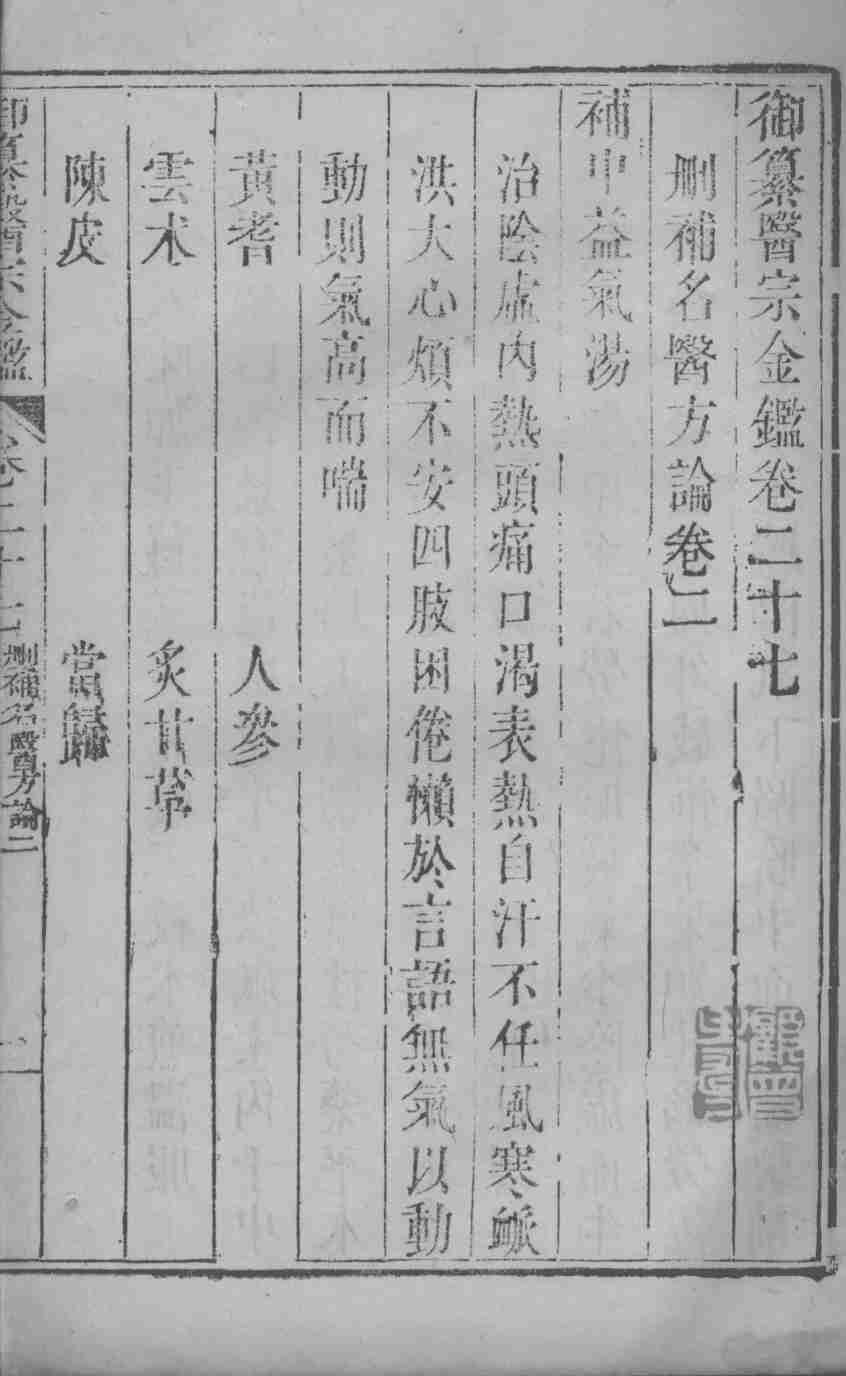 御纂醫宗金鑑卷二十七
刪補名醫方論卷二
補中益氣湯
治陰虛內熱頭痛口渴表熱自汗不任風寒脈
洪大心煩不安四肢困倦懶於言語無氣以動
動則氣高而喘
黃耆 人參
雲朮 炙甘草
陳皮 當歸
御纂醫宗金鑑 卷二十七 刪補名醫方論二 一